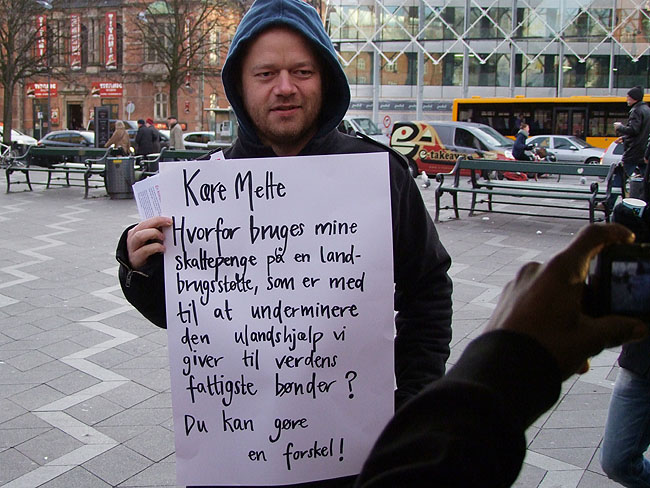 Kære Mette
Hvorfor bruges mine
skattepenge på en land-
brugsstøtte, som er med
til at underminere
den ulandshjælp vi
giver til verdens
fattigste bønder?
Du kan gøre
en forskel!
e-takeaway